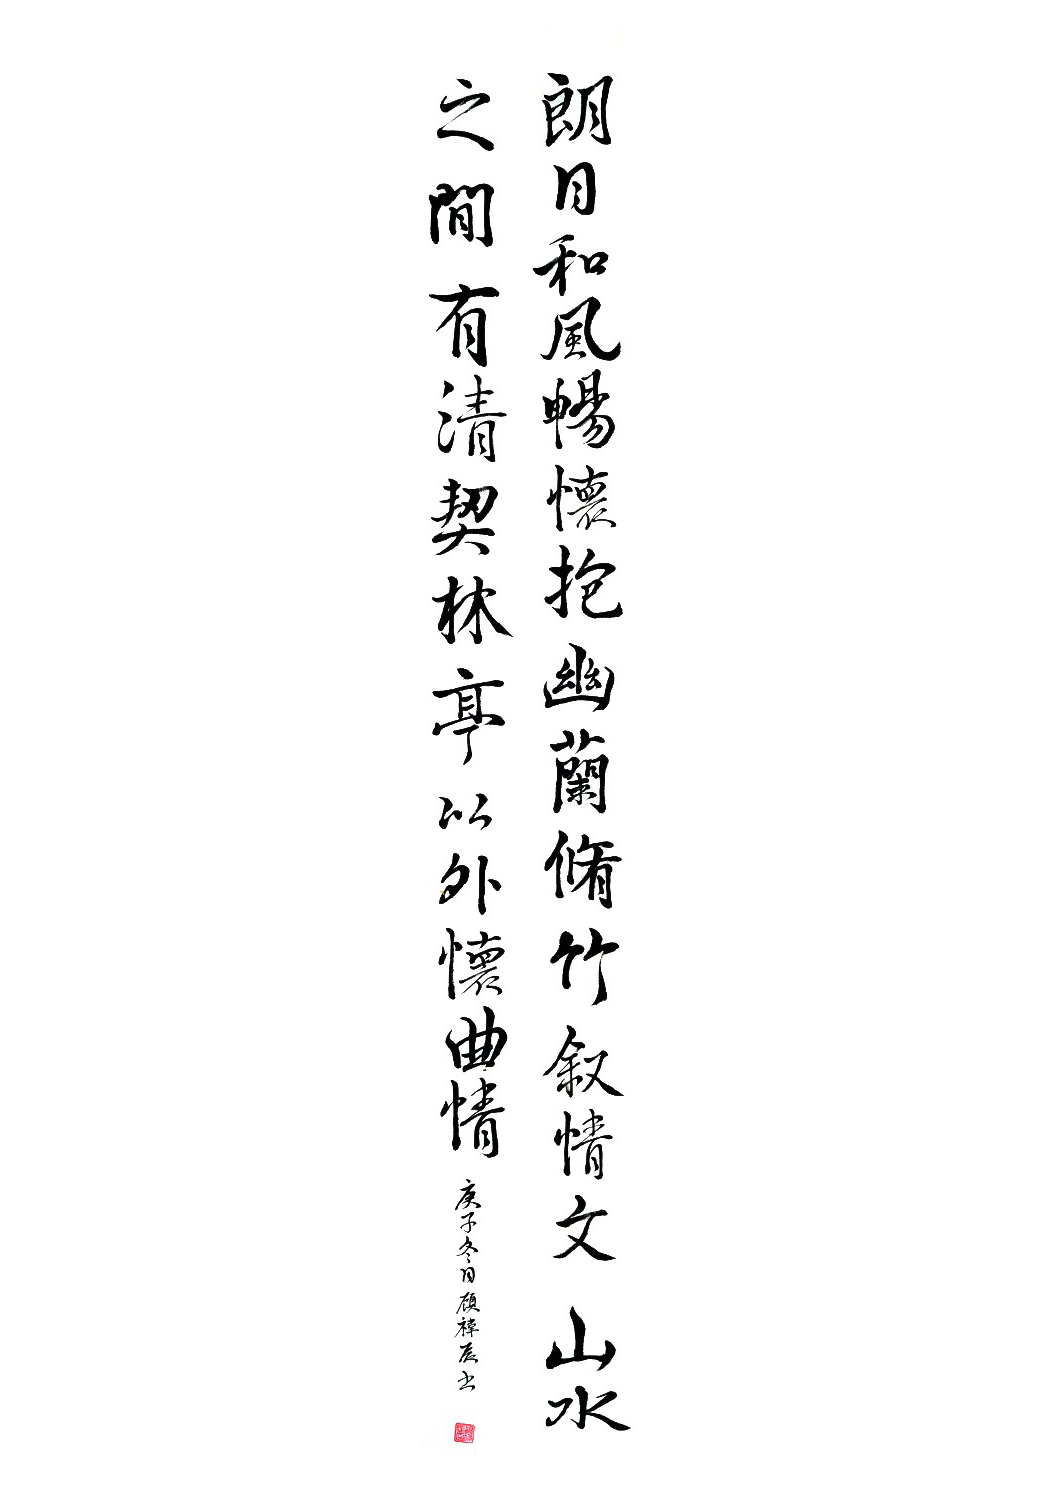 朗日和風暢懷抱幽蘭脩竹叙情文山水
之間有清契林亭以外懷曲情
庚子冬日顾祎辰书